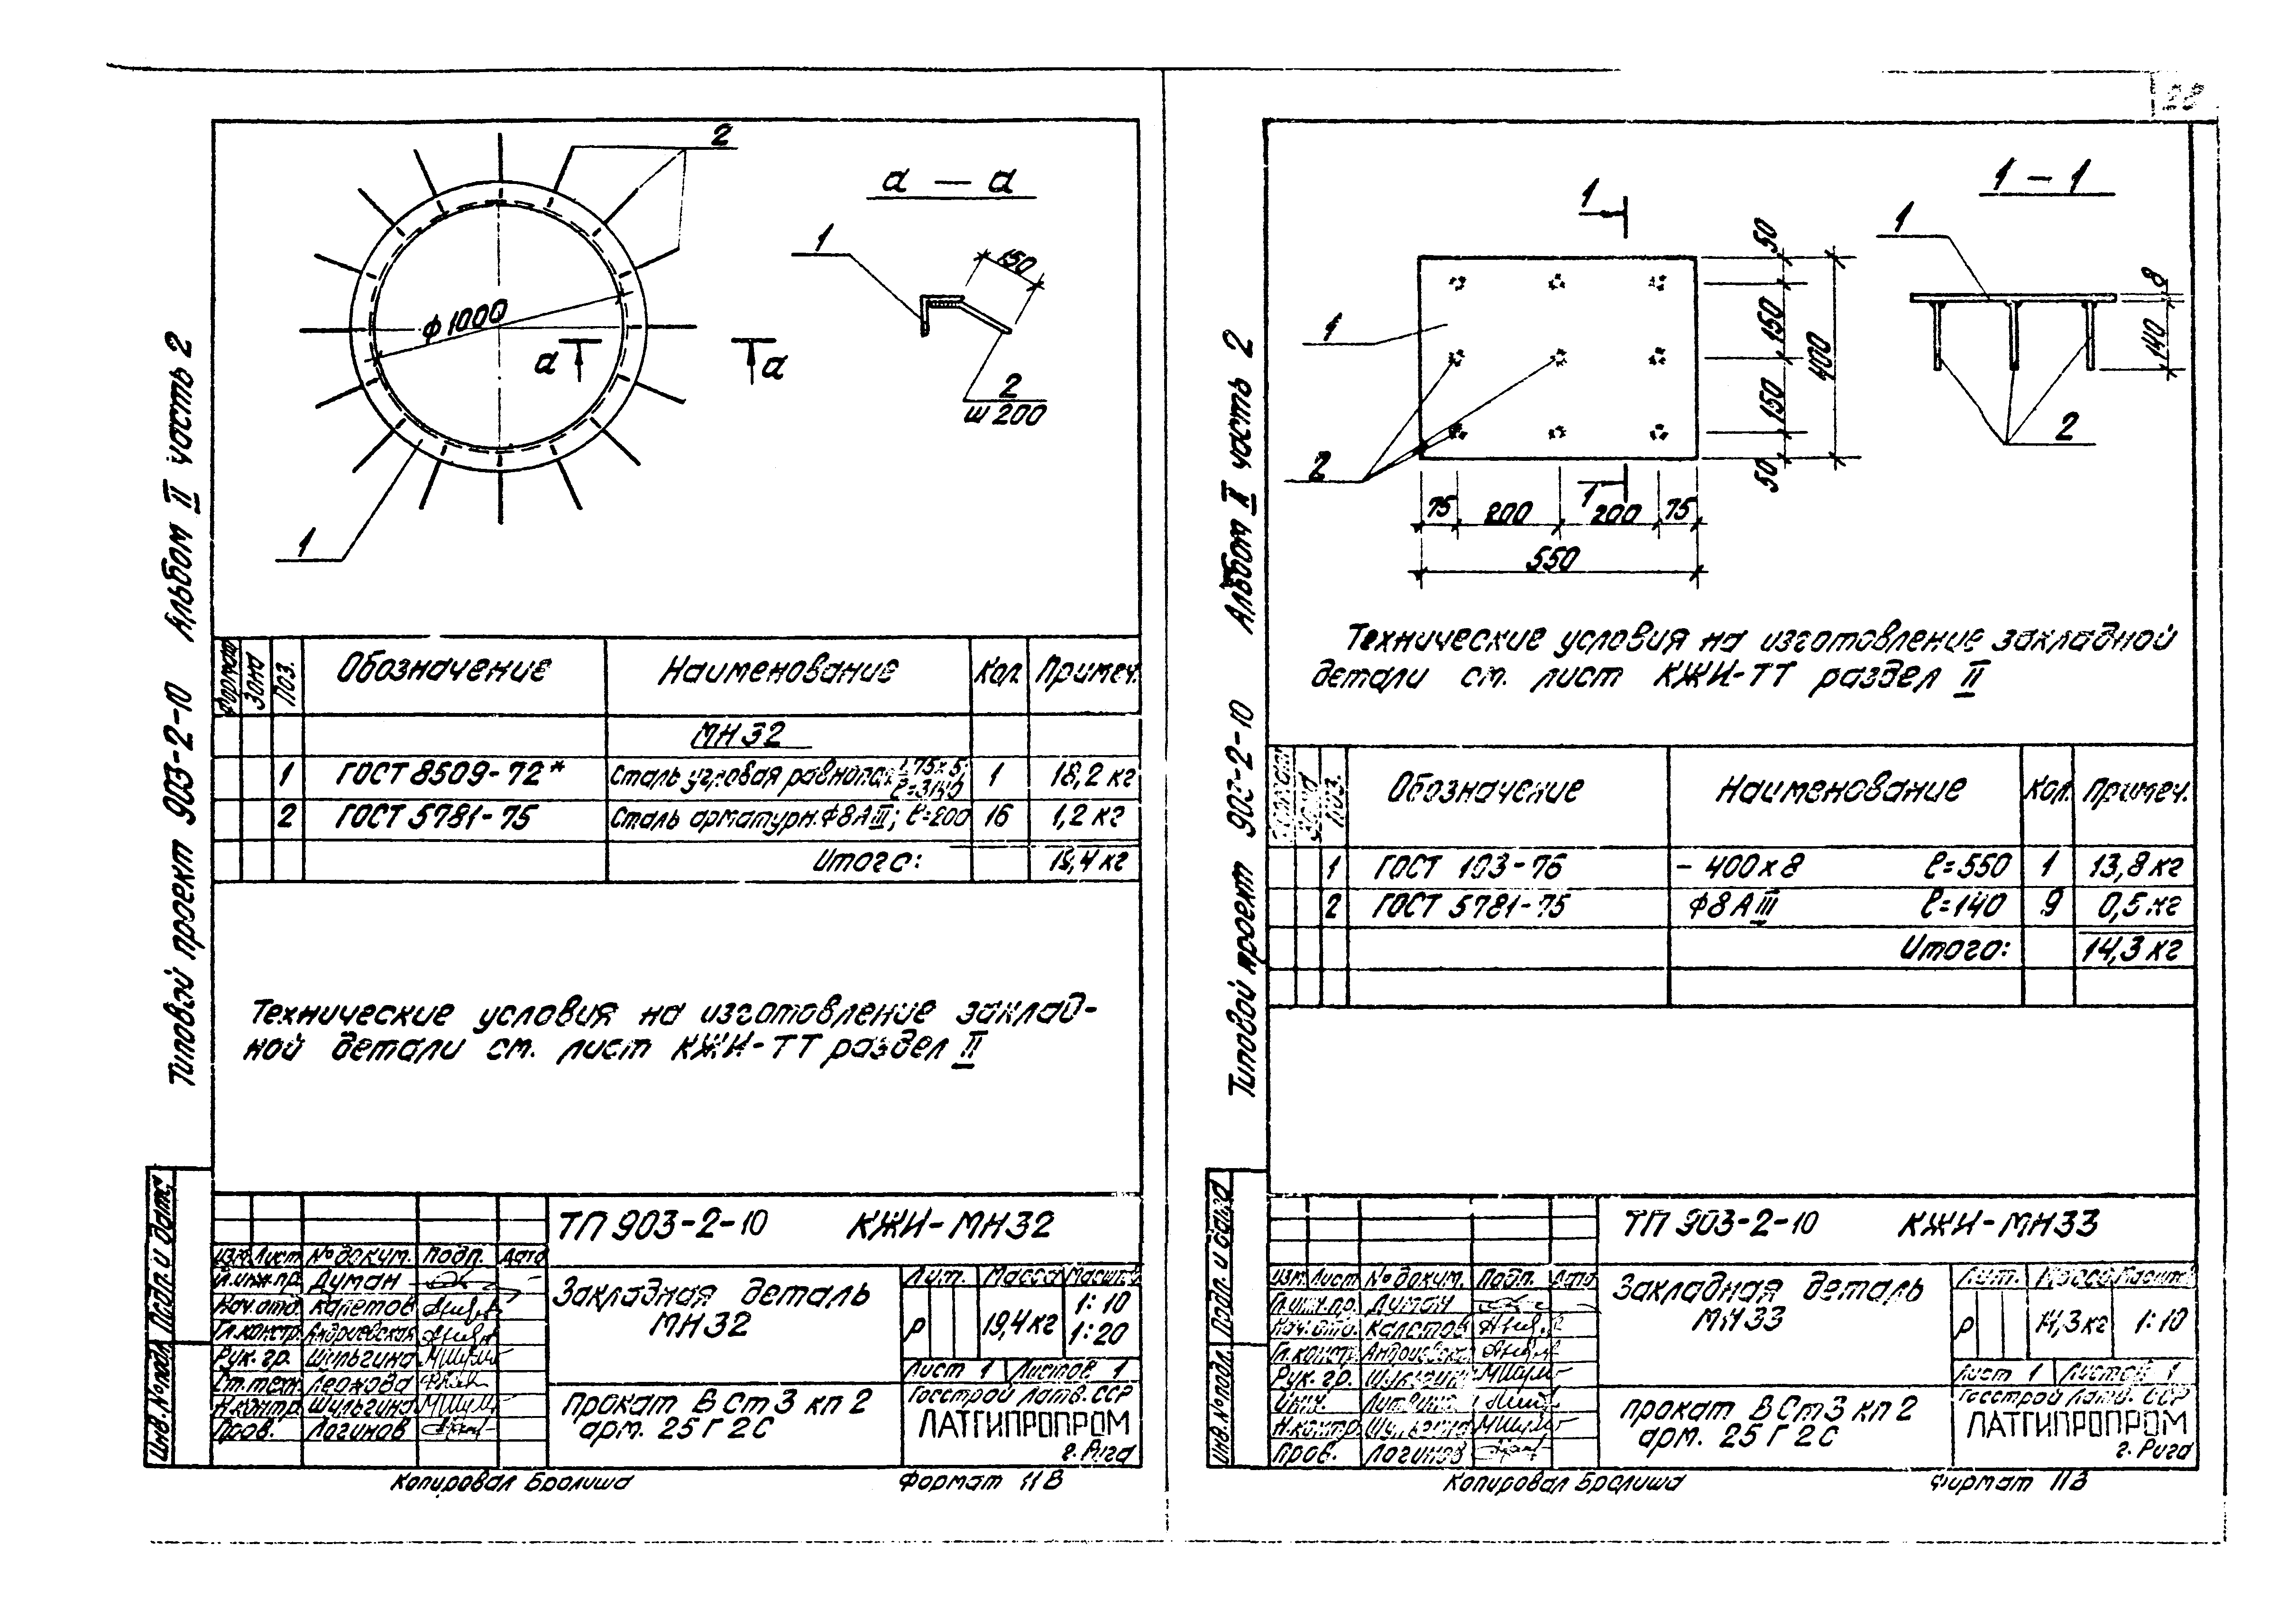 28
Типовой проект 903-2-10 Альбом II часть 2
2
а — а
1
150
ф1000
а
а
2
ш 200
1
Формат
Зона
Поз.
Обозначение
Наименование
Кол.
Примеч.
МН32
1 ГОСТ 8509-72* Сталь угловая равнопол. L75×5; ℓ=3140 1 18,2 кг
2 ГОСТ 5781-75 Сталь арматурн. Ф8АIII; ℓ=200 16 1,2 кг
Итого: 19,4 кг
Технические условия на изготовление заклад-
ной детали см. лист КЖИ-ТТ раздел II
ТП 903-2-10 КЖИ-МН32
Изм. Лист № докум. Подп. Дата
Гл.инж.пр. Думан
Нач.отд. Калетов
Гл.констр. Андриевская
Рук. гр. Шульгина
Ст.техн. Леонова
Н.контр. Шульгина
Пров. Логинов
Закладная деталь
МН32
Лит. Масса Масшт.
Р 19,4 кг 1:10
1:20
Лист 1 Листов 1
Прокат ВСт3 кп2
арм. 25Г2С
Госстрой Латв. ССР
ЛАТГИПРОПРОМ
г. Рига
Подп. и дата
Инв. № подл.
Копировал Бралиша Формат 11В
Типовой проект 903-2-10 Альбом II часть 2
1
1 — 1
1
50
150
400
150
50
1
2
8
140
2
1
75 200 200 75
550
Технические условия на изготовление закладной
детали см. лист КЖИ-ТТ раздел II
Формат
Зона
Поз.
Обозначение
Наименование
Кол.
Примеч.
1 ГОСТ 103-76 - 400×8 ℓ=550 1 13,8 кг
2 ГОСТ 5781-75 Ф8АIII ℓ=140 9 0,5 кг
Итого: 14,3 кг
ТП 903-2-10 КЖИ-МН33
Изм. Лист № докум. Подп. Дата
Гл.инж.пр. Думан
Нач.отд. Калетов
Гл.констр. Андриевская
Рук. гр. Шульгина
Инж.
Н.контр. Шульгина
Пров. Логинов
Закладная деталь
МН33
Лит. Масса Масшт.
Р 14,3 кг 1:10
Лист 1 Листов 1
прокат ВСт3 кп2
арм. 25Г2С
Госстрой Латв. ССР
ЛАТГИПРОПРОМ
г. Рига
Подп. и дата
Инв. № подл.
Копировал Бралиша Формат 11В